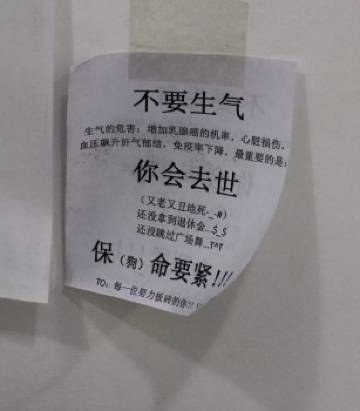 不要生气
生气的危害：增加乳腺癌的机率，心脏损伤，
血压飙升肝气郁结，免疫率下降，最重要的是：
你会去世
（又老又丑地死-_-#）
还没拿到退休金...$_$
还没跳过广场舞...T^T
保（狗）命要紧!!!
TO：每一位努力板砖的你!!